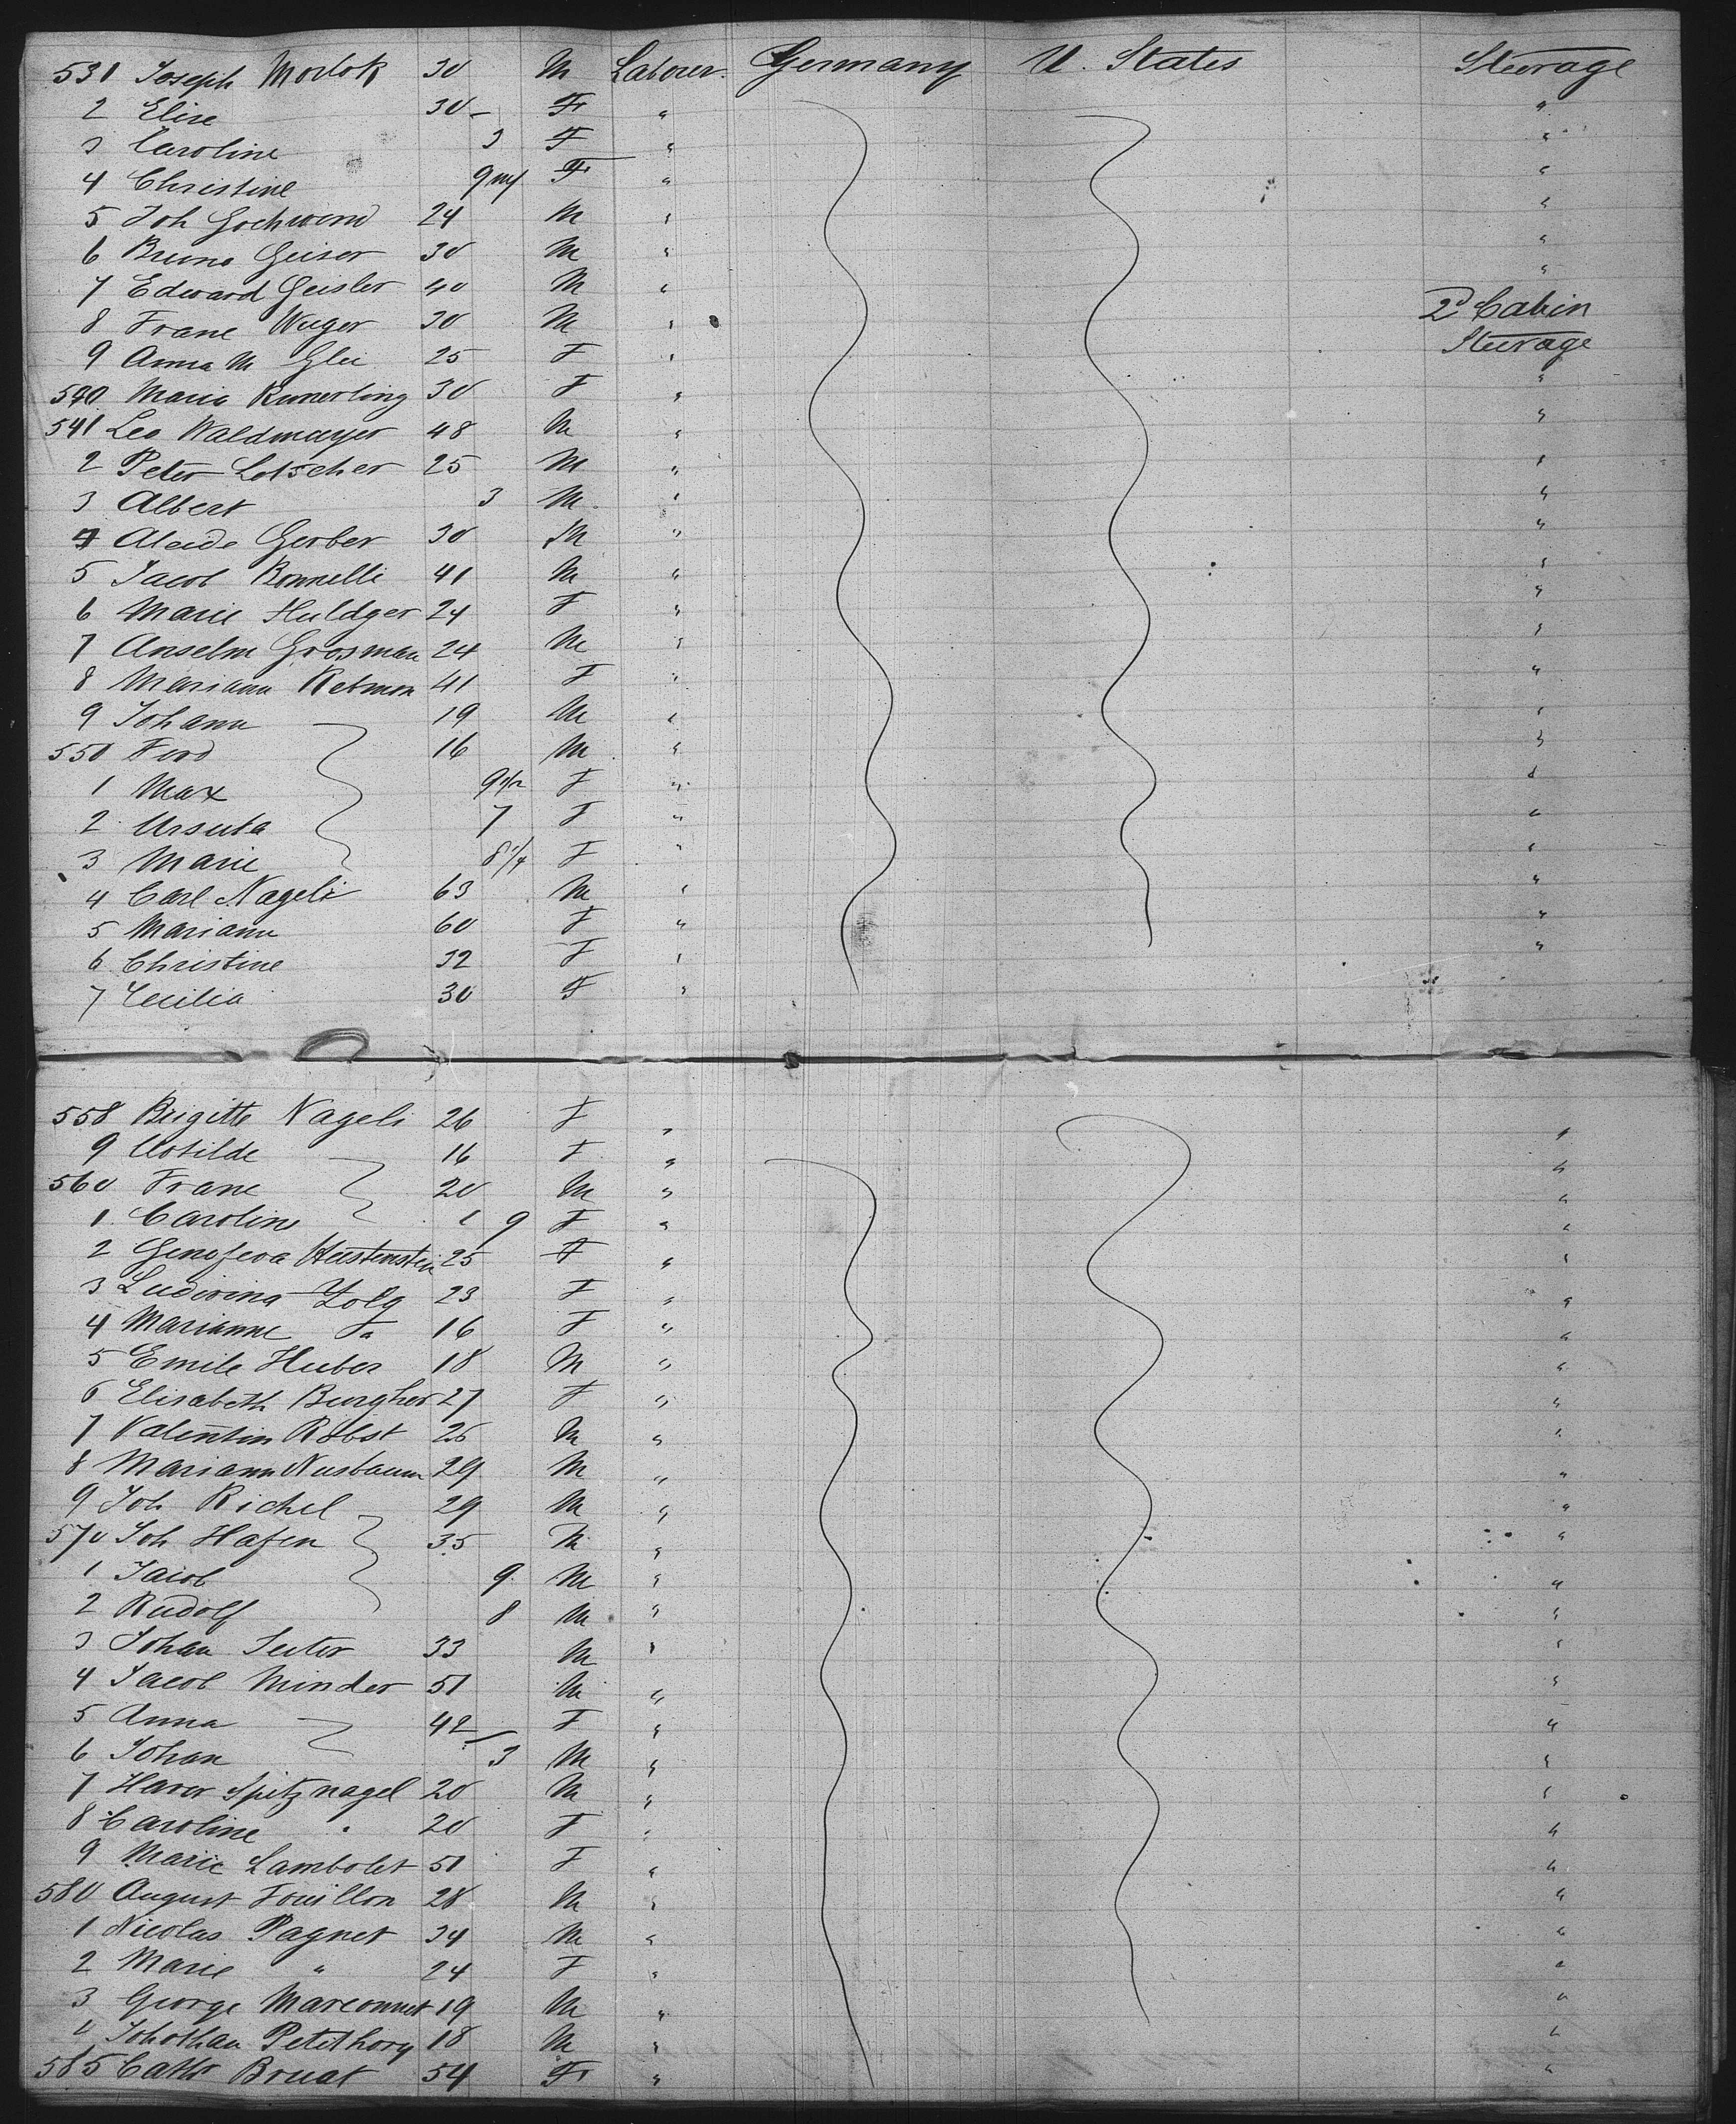 531 Joseph Morlok 30 M Laborer. Germany U. States Steerage
2 Elise 30 - F " "
3 Caroline 3 F " "
4 Christine 9 m/ F " "
5 Joh Gschwend 24 M " "
6 Bruno Geiser 30 M " "
7 Edward Geisler 40 M " "
8 Franc Wuger 30 M " 2d Cabin
9 Anna M 25 F " Steerage
540 Maria 30 F " "
541 Leo Waldmayer 48 M " "
2 Peter Lotscher 25 M " "
3 Albert 3 M " "
4 Alcide Gerber 30 M " "
5 Jacob Bonnelli 41 M " "
6 Marie Huldger 24 F " "
7 Anselm Grosman 24 M " "
8 Mariann 41 F " "
9 Johann 19 M " "
550 Ferd 16 M " "
1 Max 9 1/2 F " "
2 Ursula 7 F " "
3 Marie 8 1/4 F " "
4 Carl Nageli 63 M " "
5 Mariann 60 F " "
6 Christine 32 F " "
7 Cecilia 30 F "
558 Brigitte Nageli 26 F " "
9 Clotilde 16 F " "
560 Franc 20 M " "
1 Caroline 9 F " "
2 Genofeva 25 F " "
3 Ludwina Zolg 23 F " "
4 Marianne 16 F " "
5 Emile Huber 18 M " "
6 Elisabeth Burgher 27 F " "
7 Valentin Robst 26 M " "
8 Mariann Nusbaum 29 M " "
9 Joh Richel 29 M " "
570 Joh Hafen 35 M " "
1 Jacob 9 M " "
2 Rudolf 8 M " "
3 Johan Suter 33 M " "
4 Jacob Minder 51 M " "
5 Anna 42 F " "
6 Johan 3 M " "
7 Spitznagel 20 M " "
8 Caroline " 20 F " "
9 Marie Lambolet 50 F " "
580 August Fouillon 28 M " "
1 Nicolas Pagnet 34 M " "
2 Marie " 24 F " "
3 George Marconnet 19 M " "
4 Petithory 18 M " "
585 Cath Bruat 54 F " "